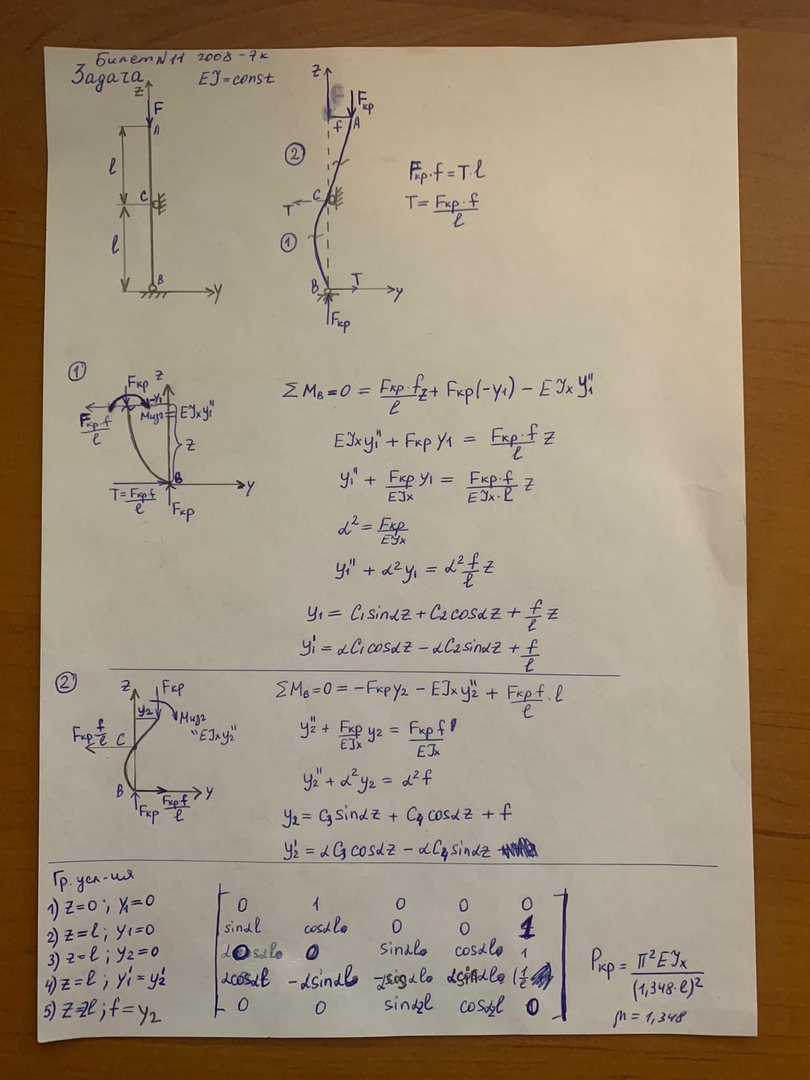 Билет N 11 2008-7к
Задача EJ=const
z
F
A
l
C
l
B
y
z
F
Fкр
f
A
②
C
T
①
B
T
y
Fкр
Fкр·f=T·l
T=Fкр·f/l
①
z
Fкр
-y₁
Mизг
EJxy₁''
Fкр·f/l
z
B
y
T=Fкр·f/l
Fкр
ΣMв=0=Fкр·f/l z+Fкр(-y₁)-EJxy₁''
EJxy₁''+Fкр y₁=Fкр·f/l z
y₁''+Fкр/EJx y₁=Fкр·f/EJx·l z
α²=Fкр/EJx
y₁''+α²y₁=α² f/l z
y₁=C₁sinαz+C₂cosαz+f/l z
y₁'=αC₁cosαz-αC₂sinαz+f/l
②
z
Fкр
y₂
Mизг
"EJxy₂''
Fкр f/l
C
B
y
Fкр
Fкр·f/l
ΣMв=0=-Fкр y₂-EJx y₂''+Fкр·f/l·l
y₂''+Fкр/EJx y₂=Fкр f/EJx
y₂''+α²y₂=α²f
y₂=C₃sinαz+C₄cosαz+f
y₂'=αC₃cosαz-αC₄sinαz
Гр. усл-ия
1) z=0; y₁=0
2) z=l; y₁=0
3) z=l; y₂=0
4) z=l; y₁'=y₂'
5) z=2l; f=y₂
0 1 0 0 0
sinαl cosαl 0 0 1
0 0 sinαl cosαl 1
αcosαl -αsinαl αsinαl
0 0 sinα2l cosα2l 0
Pкр=π²EJx/(1,348·l)²
μ=1,348